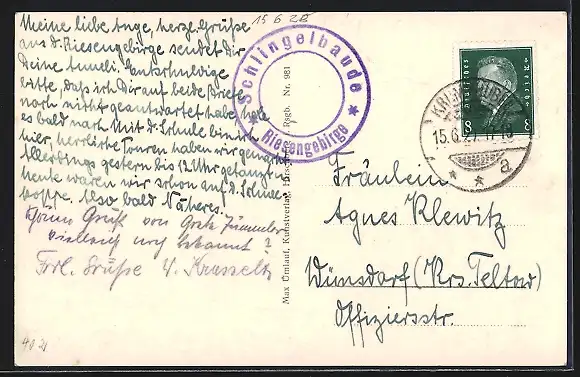 15 6 28
Meine liebe Inge, herzl. Grüße
aus d. Riesengebirge sendet Dir
Deine Anneli. Entschuldige
bitte, daß ich Dir auf beide Briefe
noch nicht geantwortet habe, hole
es bald nach. Mit d. Schule bin ich
hier, herrliche Touren haben wir gemacht.
Allerdings gestern bis 12 Uhr getanzt u.
heute waren wir schon auf d. Schnee-
koppe. Also bald Näheres.
Gruß von Grete Zimmler
vielleicht noch bekannt?
Frdl. Grüße
4021
Schlingelbaude
* Riesengebirge *
Max Umlauf, Kunstverlag, Rsgb. Nr. 981
Deutsches Reich
8 8
15.6.
a
Fräulein
Agnes Klewitz
Wünsdorf (Krs. Teltow)
Offiziersstr.